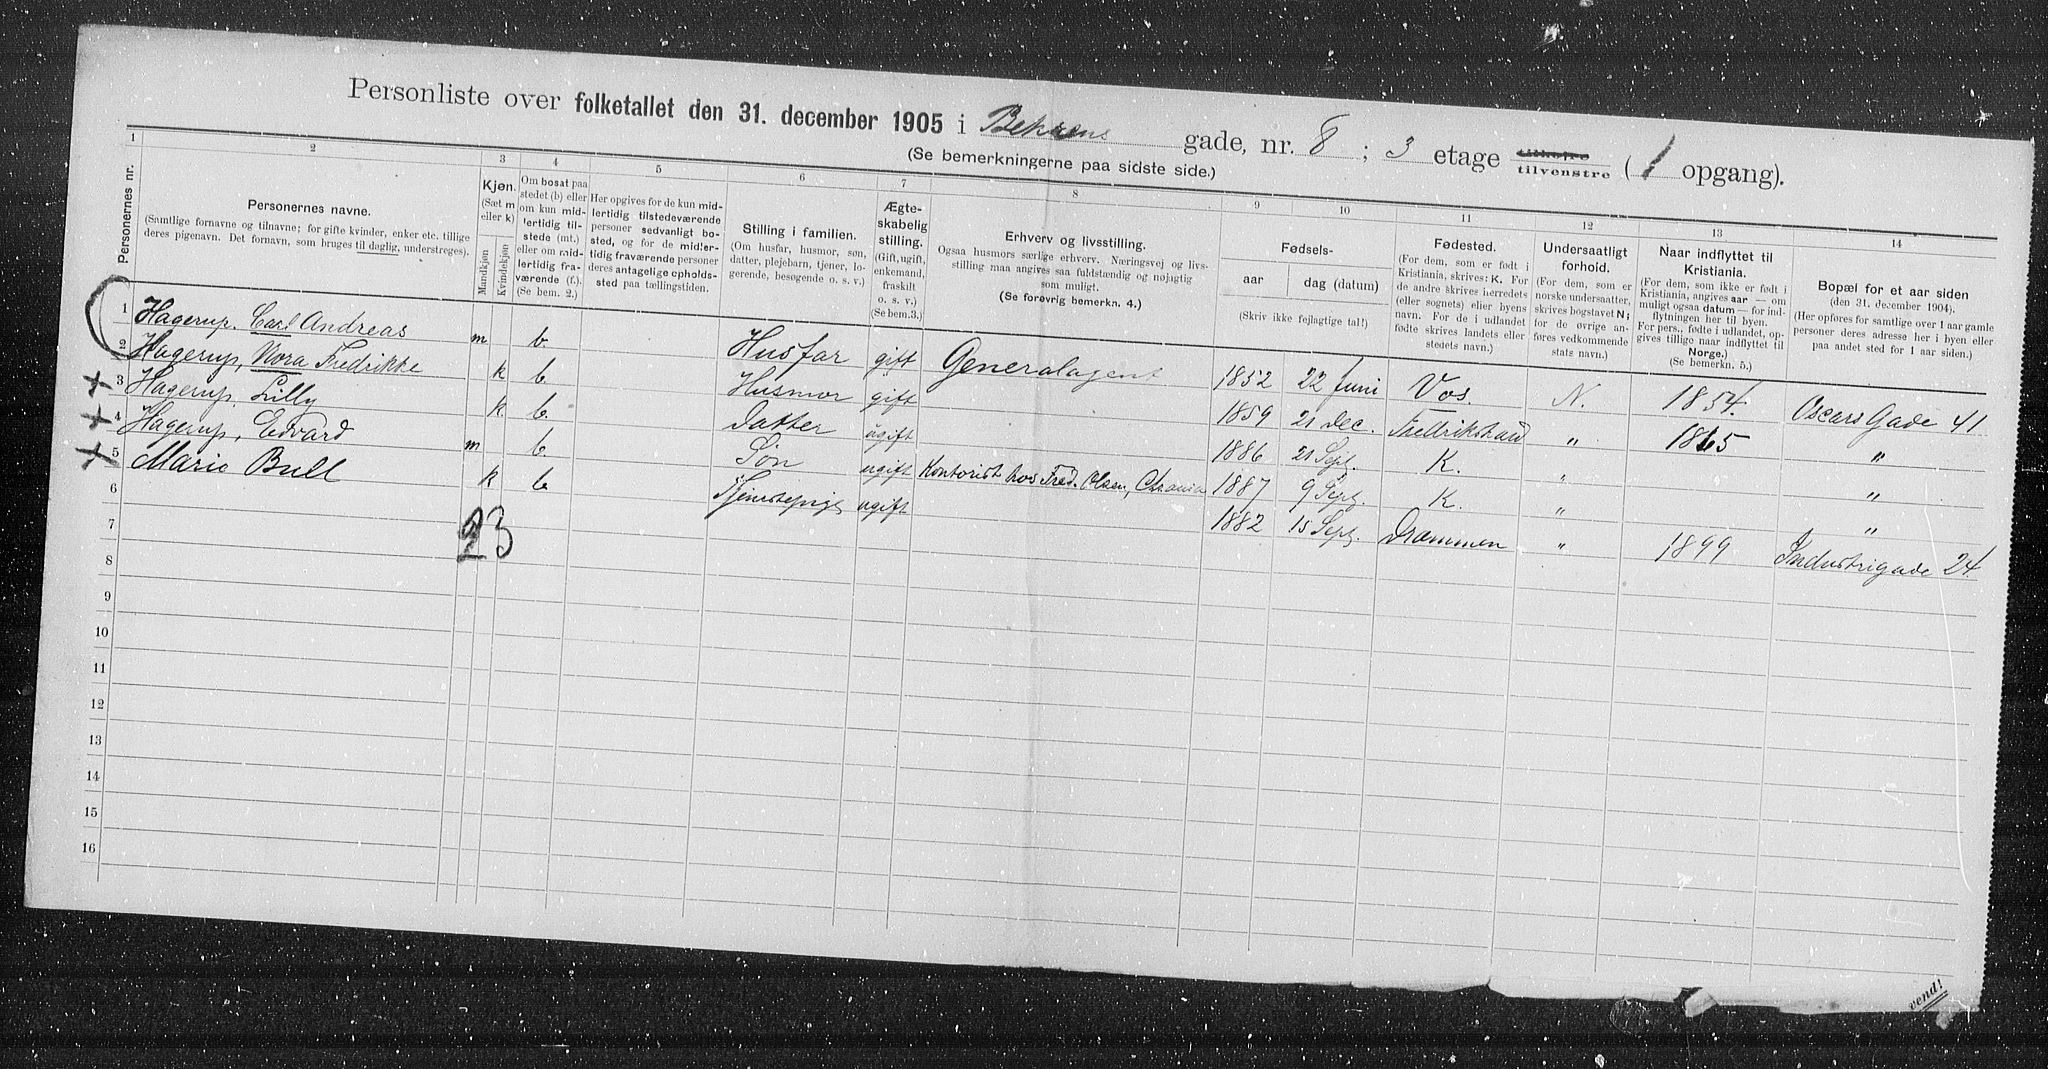 Personliste over folketallet den 31. december 1905 i Behrens gade, nr. 8; 3 etage tilhøire tilvenstre (1 opgang).
(Se bemerkningerne paa sidste side.)
1 2 3 4 5 6 7 8 9 10 11 12 13 14
Personernes nr.
Personernes navne.
(Samtlige fornavne og tilnavne; for gifte kvinder, enker etc. tillige
deres pigenavn. Det fornavn, som bruges til daglig, understreges).
Kjøn.
(Sæt m
eller k)
Mandkjøn
Kvindekjøn
Om bosat paa
stedet (b) eller
om kun mid-
lertidig til-
stede (mt.)
eller om mid-
lertidig fra-
værende (f.).
(Se bem. 2.)
Her opgives for de kun mid-
lertidig tilstedeværende
personer sedvanligt bo-
sted, og for de midler-
tidig fraværende personer
deres antagelige opholds-
sted paa tællingstiden.
Stilling i familien.
(Om husfar, husmor, søn,
datter, plejebarn, tjener, lo-
gerende, besøgende o. s. v.)
Ægte-
skabelig
stilling.
(Gift, ugift,
enkemand,
fraskilt
o. s. v.)
(Se bem.3.)
Erhverv og livsstilling.
Ogsaa husmors særlige erhverv. Næringsvej og livs-
stilling maa angives saa fuldstændig og nøjagtig
som muligt.
(Se forøvrig bemerkn. 4.)
Fødsels-
aar dag (datum)
(Skriv ikke fejlagtige tal!)
Fødested.
(For dem, som er født i
Kristiania, skrives: K. For
de andre skrives herredets
(eller sognets) eller byens
navn. For de i udlandet
fødte skrives landets eller
stedets navn.)
Undersaatligt
forhold.
(For dem, som er
norske undersaatter,
skrives bogstavet N;
for de øvrige an-
føres vedkommende
stats navn.)
Naar indflyttet til
Kristiania.
(For dem, som ikke er født i
Kristiania, angives aar — om
muligt ogsaa datum — for ind-
flytningen her til byen.
For pers., fødte i udlandet, op-
gives tillige naar indflyttet til
Norge.)
(Se bemerkn. 5.)
Bopæl for et aar siden
(den 31. december 1904).
(Her opføres for samtlige over 1 aar gamle
personer deres adresse her i byen eller
paa andet sted for 1 aar siden.)
1 Hagerup, Carl Andreas m b. Husfar gift Generalagent 1852 22 Juni Vos. N. 1854. Oscars Gade 41
2 Hagerup, Nora Fredrikke k b. Husmor gift 1859 21 Dec. Fredrikstad " 1865 "
3 Hagerup, Lilly k b. Datter ugift 1886 21 Sept. K. " "
4 Hagerup, Edvard m b. Søn ugift Kontorist hos Fred. Olsen, Chrania 1887 9 Sept. K. " "
5 Marie Bull k b Tjenestepige ugift 1882 15 Sept. Drammen " 1899 Industrigade 24.
6
23
7
8
9
10
11
12
13
14
15
16
vend!